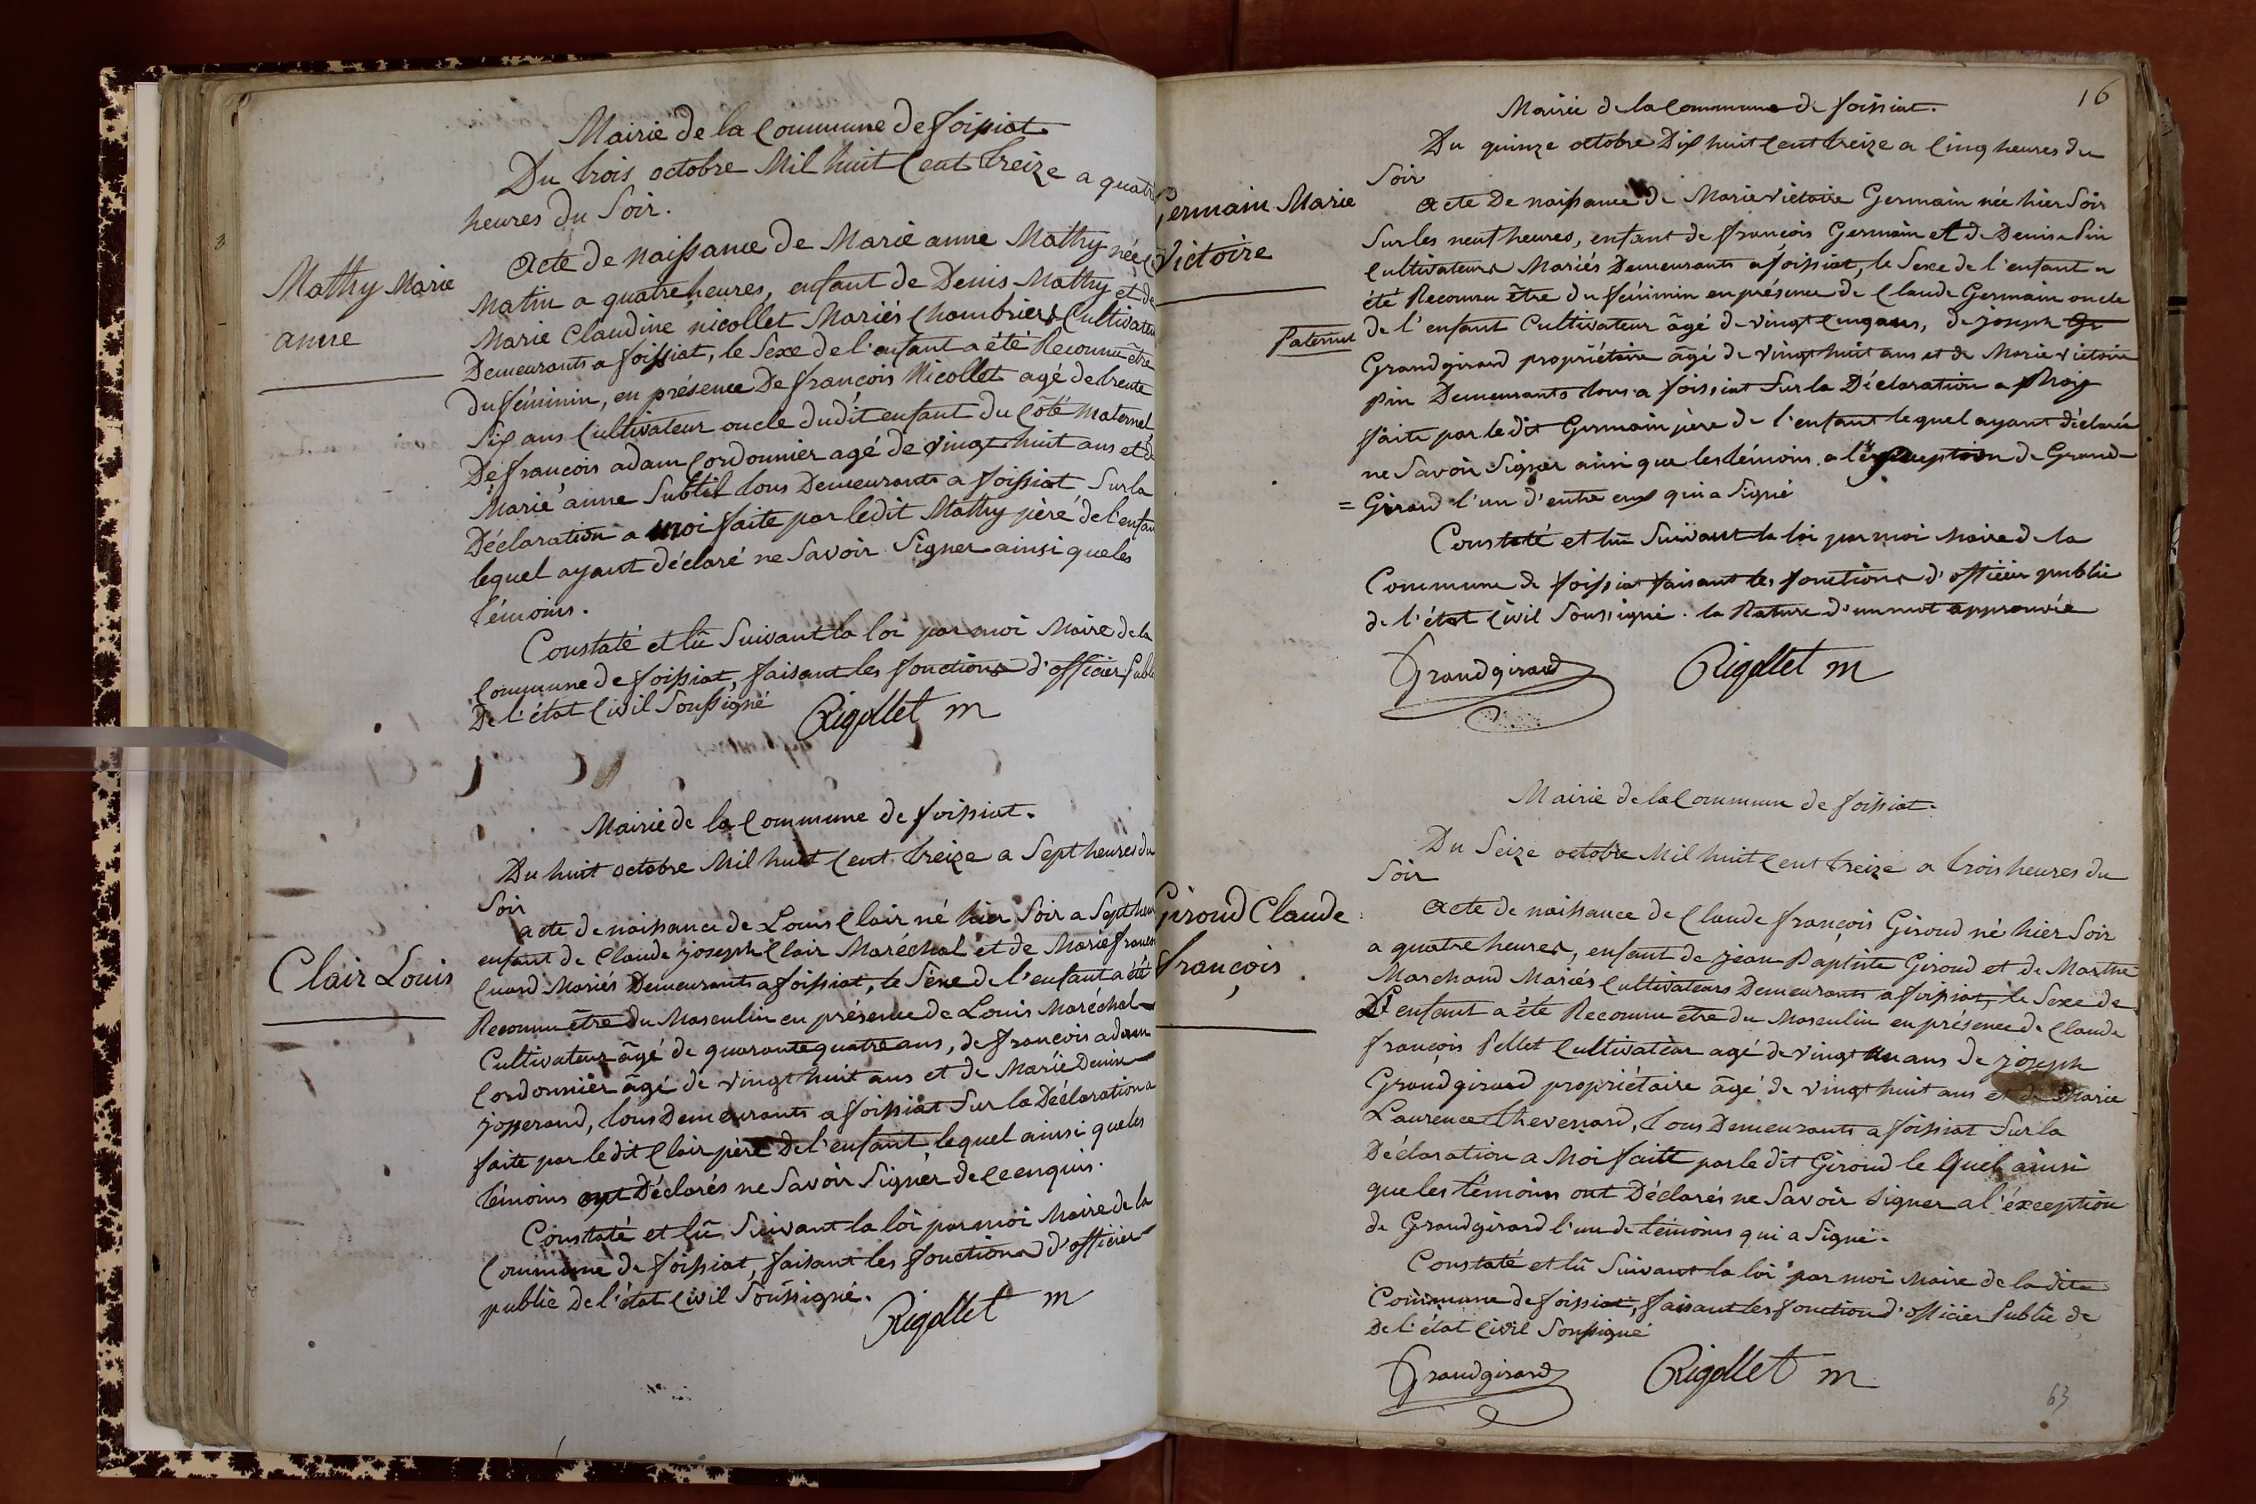 Mairie de la Commune de foissiat.
Du trois octobre Mil huit Cent treize a quatre
heures du Soir.
Mathy Marie
anne
Acte de naissance de Marie anne Mathy née ce
Matin a quatre heures, enfant de Denis Mathy et de
Marie Claudine nicollet Mariés Chambriers Cultivateurs
Demeurants a foissiat, le Sexe de l'enfant a été Reconnu être
du féminin, en présence De françois Nicollet agé de trente
Six ans Cultivateur oncle dudit enfant du Côté maternel,
De françois adam Cordonnier agé de vingt huit ans et de
Marie anne Subtil tous Demeurants a foissiat Sur la
Déclaration a moi faite par ledit Mathy père de l'enfant
lequel ayant déclaré ne Savoir Signer ainsi que les
témoins.
Constaté et lû Suivant la loi par moi Maire de la
Commune de foissiat, faisant les fonctions d'officier Public
De l'état Civil Soussigné
Rigollet m
Mairie de la Commune de foissiat.
Du huit octobre Mil huit Cent treize a Sept heures du
Soir
Clair Louis
acte de naissance de Louis Clair né hier Soir a Sept heures
enfant de Claude joseph Clair Maréchal et de Marie
Cuard Mariés Demeurants a foissiat, le Sexe de l'enfant a été
Reconnu être du Masculin en présence de Louis Maréchal
Cultivateur âgé de quarante quatre ans, de françois adam
Cordonnier âgé de vingt huit ans et de Marie Denise
josserand, tous Demeurants a foissiat Sur la Déclaration a
faite par ledit Clair père De l'enfant lequel ainsi que les
témoins ont Déclarés ne Savoir Signer de ce enquis.
Constaté et lû Suivant la loi par moi Maire de la
Commune de foissiat, faisant les fonctions d'officier
public De l'état Civil Soussigné.
Rigollet m
16
Mairie de la Commune de foissiat.
Du quinze octobre Dix huit Cent treize a Cinq heures du
Soir
Germain Marie
Victoire
Acte De naissance de Marie victoire Germain née hier Soir
Sur les neuf heures, enfant de françois Germain et de Denise Pin
Cultivateurs Mariés Demeurants a foissiat, le Sexe de l'enfant a
été Reconnu être du féminin en présence de Claude Germain oncle
Paternel de l'enfant Cultivateur âgé de vingt Cinq ans, de joseph Gr
Grandgirard propriétaire âgé de vingt huit ans et de Marie victoire
pin Demeurants tous a foissiat Sur la Déclaration a Moi
faite par le dit Germain père de l'enfant lequel ayant déclaré
ne Savoir Signer ainsi que les témoins a l'exception de Grand-
= Girard l'un d'entre eux qui a Signé
Constaté et lû Suivant la loi par moi Maire de la
Commune de foissiat faisant les fonctions d'officier public
de l'état Civil Soussigné. la Rature d'un mot approuvée
Grandgirard Rigollet m
Mairie de la Commune de foissiat.
Du Seize octobre Mil huit Cent treize a trois heures du
Soir
Giroud Claude
françois.
Acte de naissance de Claude françois Giroud né hier Soir
a quatre heures, enfant de jean Baptiste Giroud et de Marthe
Marchand Mariés Cultivateurs Demeurants a foissiat, le Sexe de
L'enfant a été Reconnu être du Masculin en présence de Claude
françois Pellet Cultivateur agé de vingt un ans de joseph
Grandgirard propriétaire âgé de vingt huit ans et de Marie
Laurence thevenard, tous Demeurants a foissiat Sur la
Déclaration a Moi faite par le dit Giroud le quel ainsi
que les témoins ont Déclarés ne Savoir Signer a l'éxception
de Grandgirard l'un de témoins qui a Signé.
Constaté et lû Suivant la loi par moi Maire de la dite
Commune de foissiat, faisant les fonction d'officier Public de
De l'état Civil Soussigné
Grandgirard Rigollet m
63